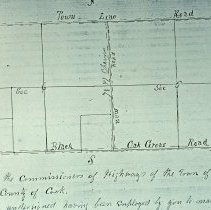 Town Line Road
Sec
Sec
Now
Black Oak Grove Road
S
the Commissioners of Highways of the Town of
County of Cook.
undersigned having been employed by you to